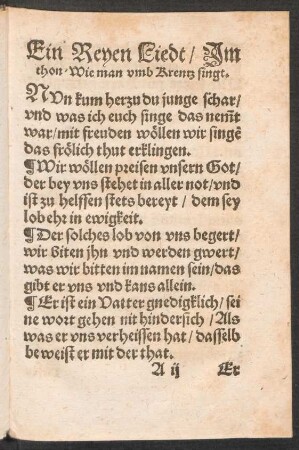 Ein Reyen Liedt / Jm
thon · Wie man vmb Krentz singt.
NVn kum herzu du junge schar /
vnd was ich euch singe das nem̃t
war / mit freuden wöllen wir singẽ
das frölich thut erklingen.
¶ Wir wöllen preisen vnsern Got /
der bey vns stehet in aller not / vnd
ist zu helffen stets bereyt / dem sey
lob ehr in ewigkeit.
¶ Der solches lob von vns begert /
wir biten jhn vnd werden gwert /
was wir bitten im namen sein / das
gibt er vns vnd kans allein.
¶ Er ist ein Vatter gnedigklich / sei
ne wort gehen nit hindersich / Als
was er vns verheissen hat / dasselb
beweist er mit der that.
A ij Er